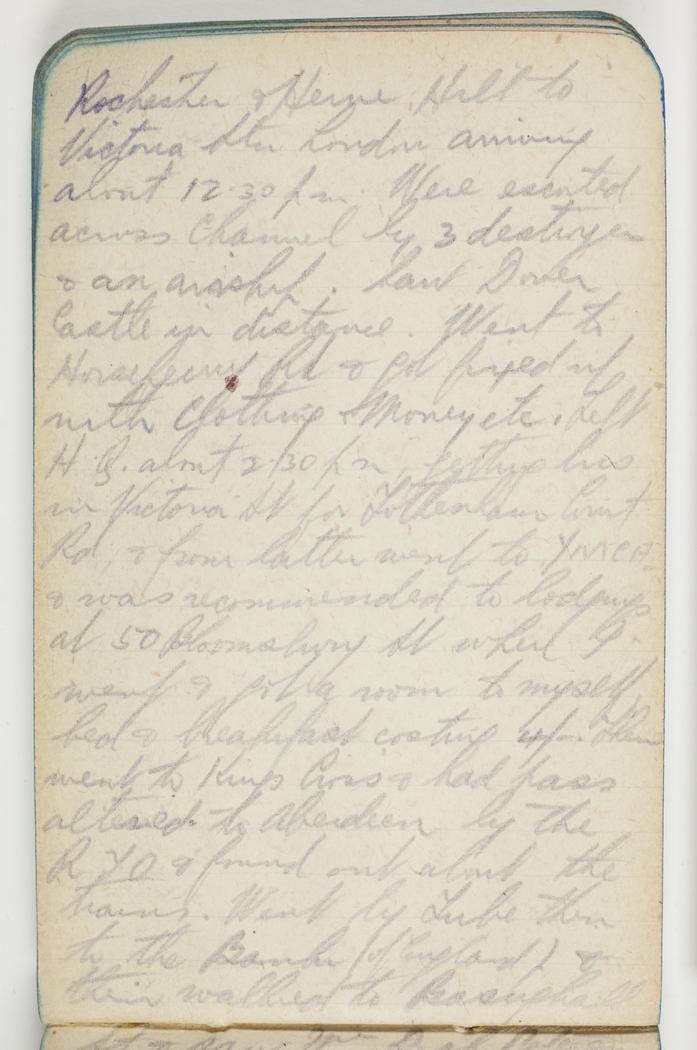 Rochester & Herne Hill to
Victoria Stn London arriving
about 12.30 pm. Were escorted
across Channel by 3 destroyer
& an airship. Saw Dover
Castle in distance. Went to
Horseferry Rd & got fixed up
with Clothing & Money etc. Left
H.Q. about 2.30 pm, getting bus
in Victoria St for Tottenham Court
Rd, & from latter went to YMCA
& was recommended to lodgings
at 50 Bloomsbury St where I
went & got a room to myself,
bed & breakfast costing Then
went to Kings Cross & had pass
altered to Aberdeen by the
R.T.O & found out about the
trains. Went by Tube then
to the Bank (of England) &
then walked to Basinghall
St &